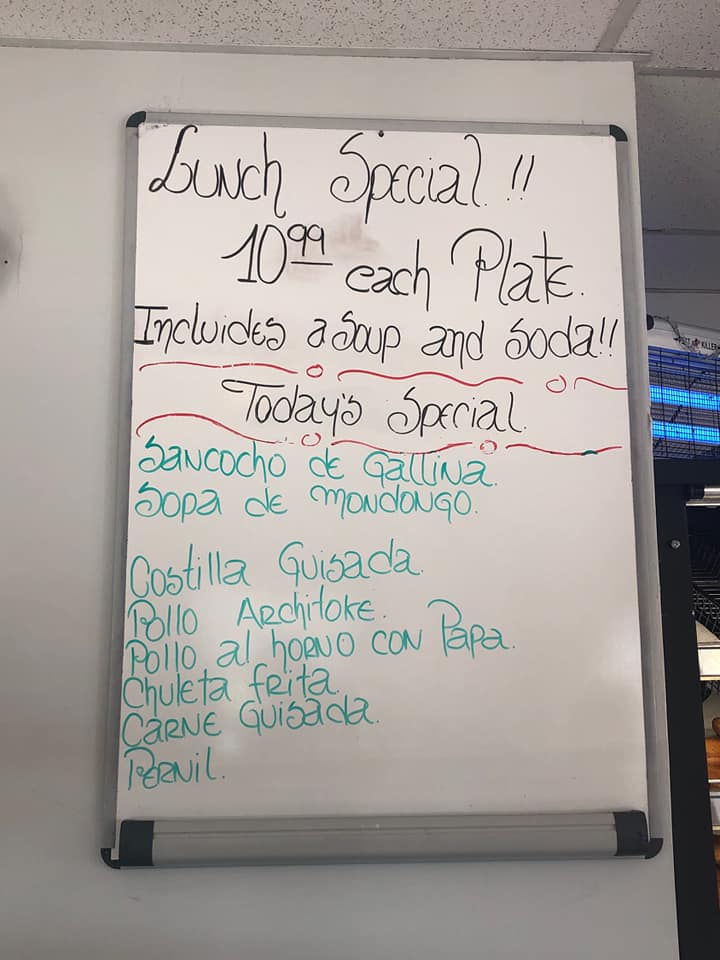 Lunch Special !!
10 99 each Plate.
Includes a Soup and Soda!!
Today's Special.
Sancocho de Gallina.
Sopa de mondongo.
Costilla Guisada.
Pollo Architoke.
Pollo al horno con Papa.
Chuleta frita.
Carne Guisada.
Pernil.
KILLER